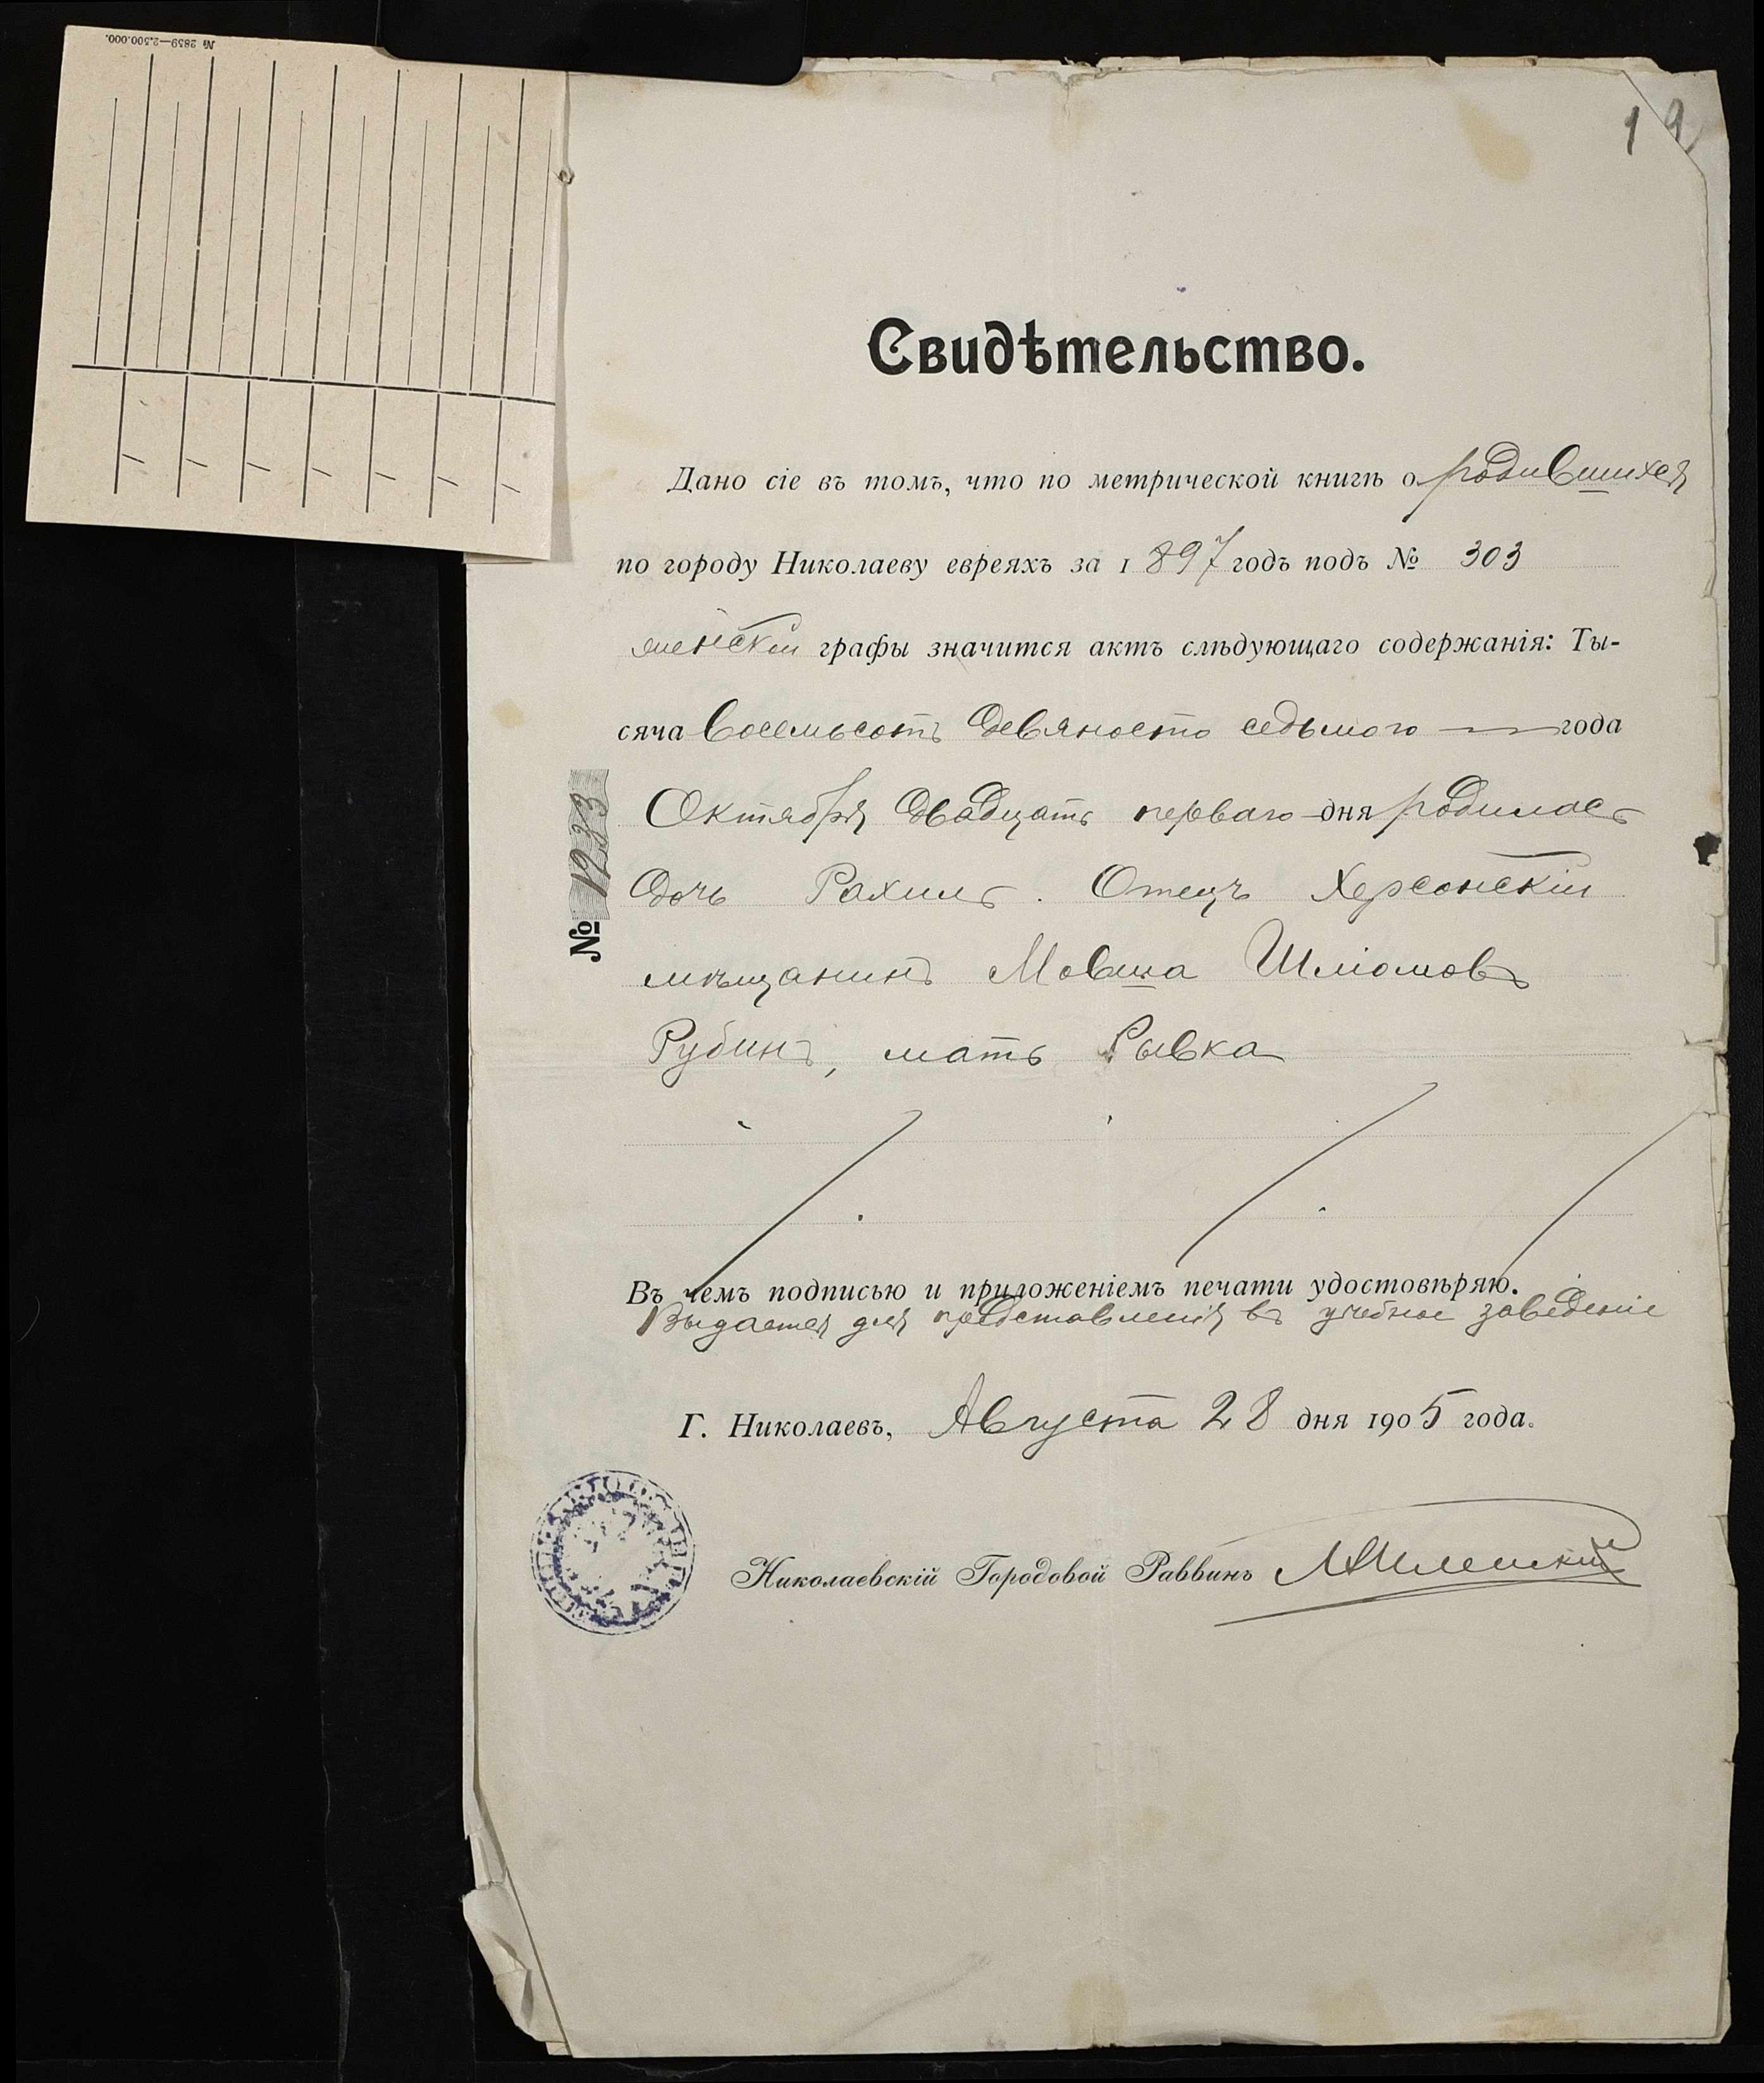 № 2859—2.500.000.
19
Свидѣтельство.
Дано сіе въ томъ, что по метрической книгѣ о родившихся
по городу Николаеву евреяхъ за 1897 годъ подъ № 303
женской графы значится актъ слѣдующаго содержанія: Ты-
сяча восемьсотъ девяносто седьмого года
Октября двадцать перваго дня родилась
дочь Рахиль. Отецъ Херсонскій
мѣщанинъ Мовша Шліомовъ
Рубинъ, мать Рывка
№ 1233
Въ чемъ подписью и приложеніемъ печати удостовѣряю.
Выдается для представленія въ учебное заведеніе
Г. Николаевъ, Августа 28 дня 1905 года.
Николаевскій Городовой Раввинъ